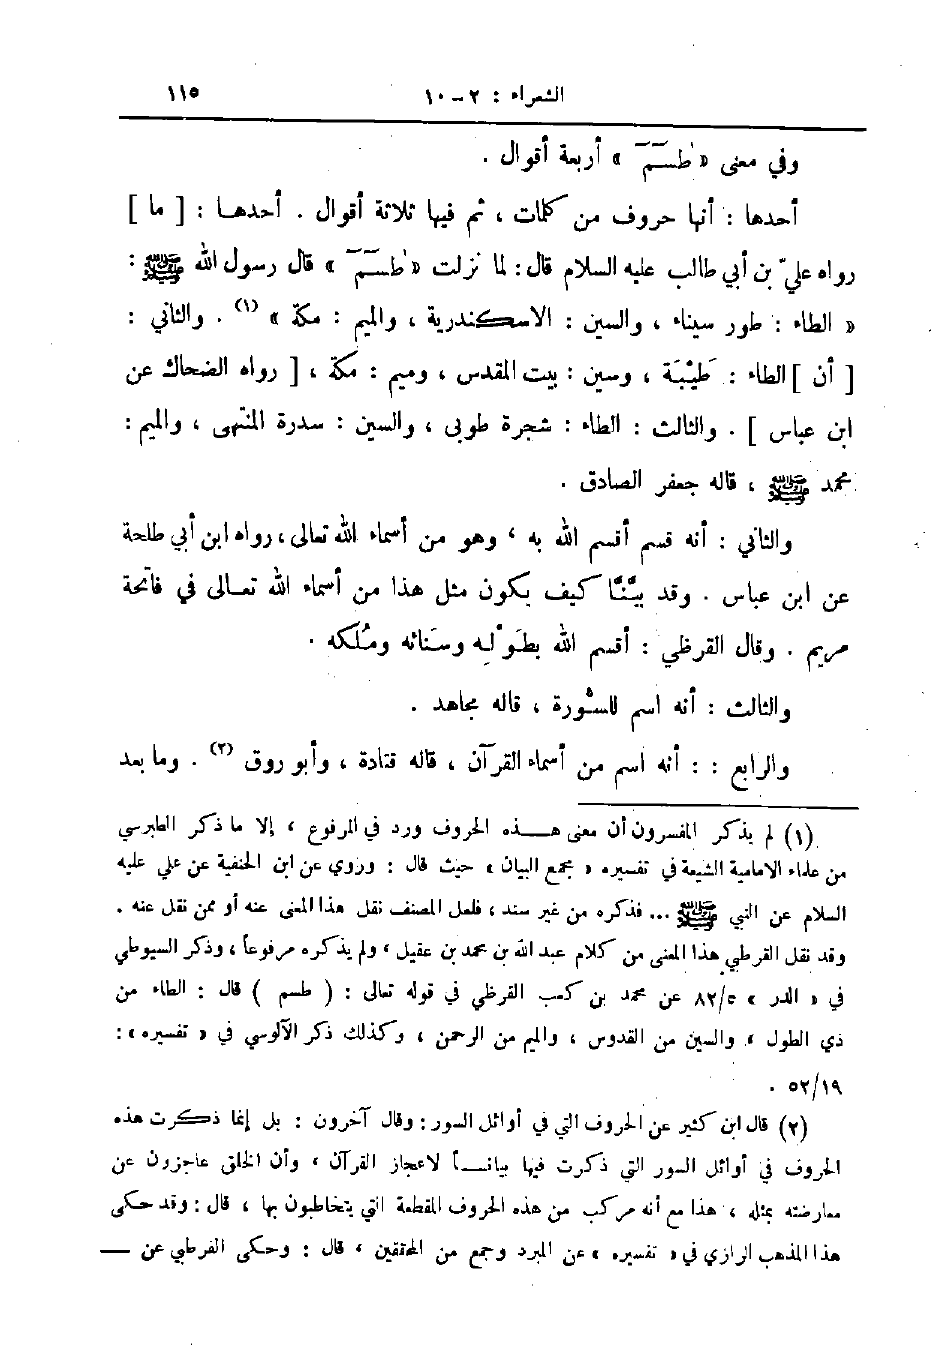 الشعراء : ٢ – ١٠ ١١٥
وفي معنى « طٰسۤمۤ » أربعة أقوال .
أحدها : أنها حروف من كلمات ، ثم فيها ثلاثة أقوال . أحدهـا : [ ما ]
رواه عليّ بن أبي طالب عليه السلام قال : لما نزلت « طٰسۤمۤ » قال رسول الله ﷺ :
« الطاء : طور سيناء ، والسين : الاسكندرية ، والميم : مكة » (١) . والثاني :
[ أن ] الطاء : طَيْبَة ، وسين : بيت المقدس ، وميم : مكة ، [ رواه الضحاك عن
ابن عباس ] . والثالث : الطاء : شجرة طوبى ، والسين : سدرة المنتهى ، والميم :
محمد ﷺ ، قاله جعفر الصادق .
والثاني : أنه قسم أقسم الله به ، وهو من أسماء الله تعالى ، رواه ابن أبي طلحة
عن ابن عباس . وقد بيَّنَّا كيف يكون مثل هذا من أسماء الله تعـالى في فاتحة
مريم . وقال القرظي : أقسم الله بطَوْلِه وسَنائه ومُلكه .
والثالث : أنه اسم للسُّورة ، قاله مجاهد .
والرابع : : أنه اسم من أسماء القرآن ، قاله قتادة ، وأبو روق (٢) . وما بعد
(١) لم يذكر المفسرون أن معنى هـــذه الحروف ورد في المرفوع ، إلا ما ذكر الطبرسي
من علماء الامامية الشيعة في تفسيره « مجمع البيان » حيث قال : وروي عن ابن الحنفية عن علي عليه
السلام عن النبي ﷺ ... فذكره من غير سند ، فلعل المصنف نقل هذا المعنى عنه أو ممن نقل عنه .
وقد نقل القرطبي هذا المعنى من كلام عبد الله بن محمد بن عقيل ، ولم يذكره مرفوعاً ، وذكر السيوطي
في « الدر » ٨٢/٥ عن محمد بن كعب القرظي في قوله تعالى : ( طسم ) قال : الطاء من
ذي الطول ، والسين من القدوس ، والميم من الرحمن ، وكذلك ذكر الآلوسي في « تفسيره » :
٥٢/١٩ .
(٢) قال ابن كثير عن الحروف التي في أوائل السور : وقال آخرون : بل إنما ذكرت هذه
الحروف في أوائل السور التي ذكرت فيها بيانـــاً لاعجاز القرآن ، وأن الخلق عاجزون عن
معارضته بمثله ، هذا مع أنه مركب من هذه الحروف المقطعة التي يتخاطبون بها ، قال : وقد حكى
هذا المذهب الرازي في « تفسيره » عن المبرد وجمع من المحققين ، قال : وحكى القرطبي عن —